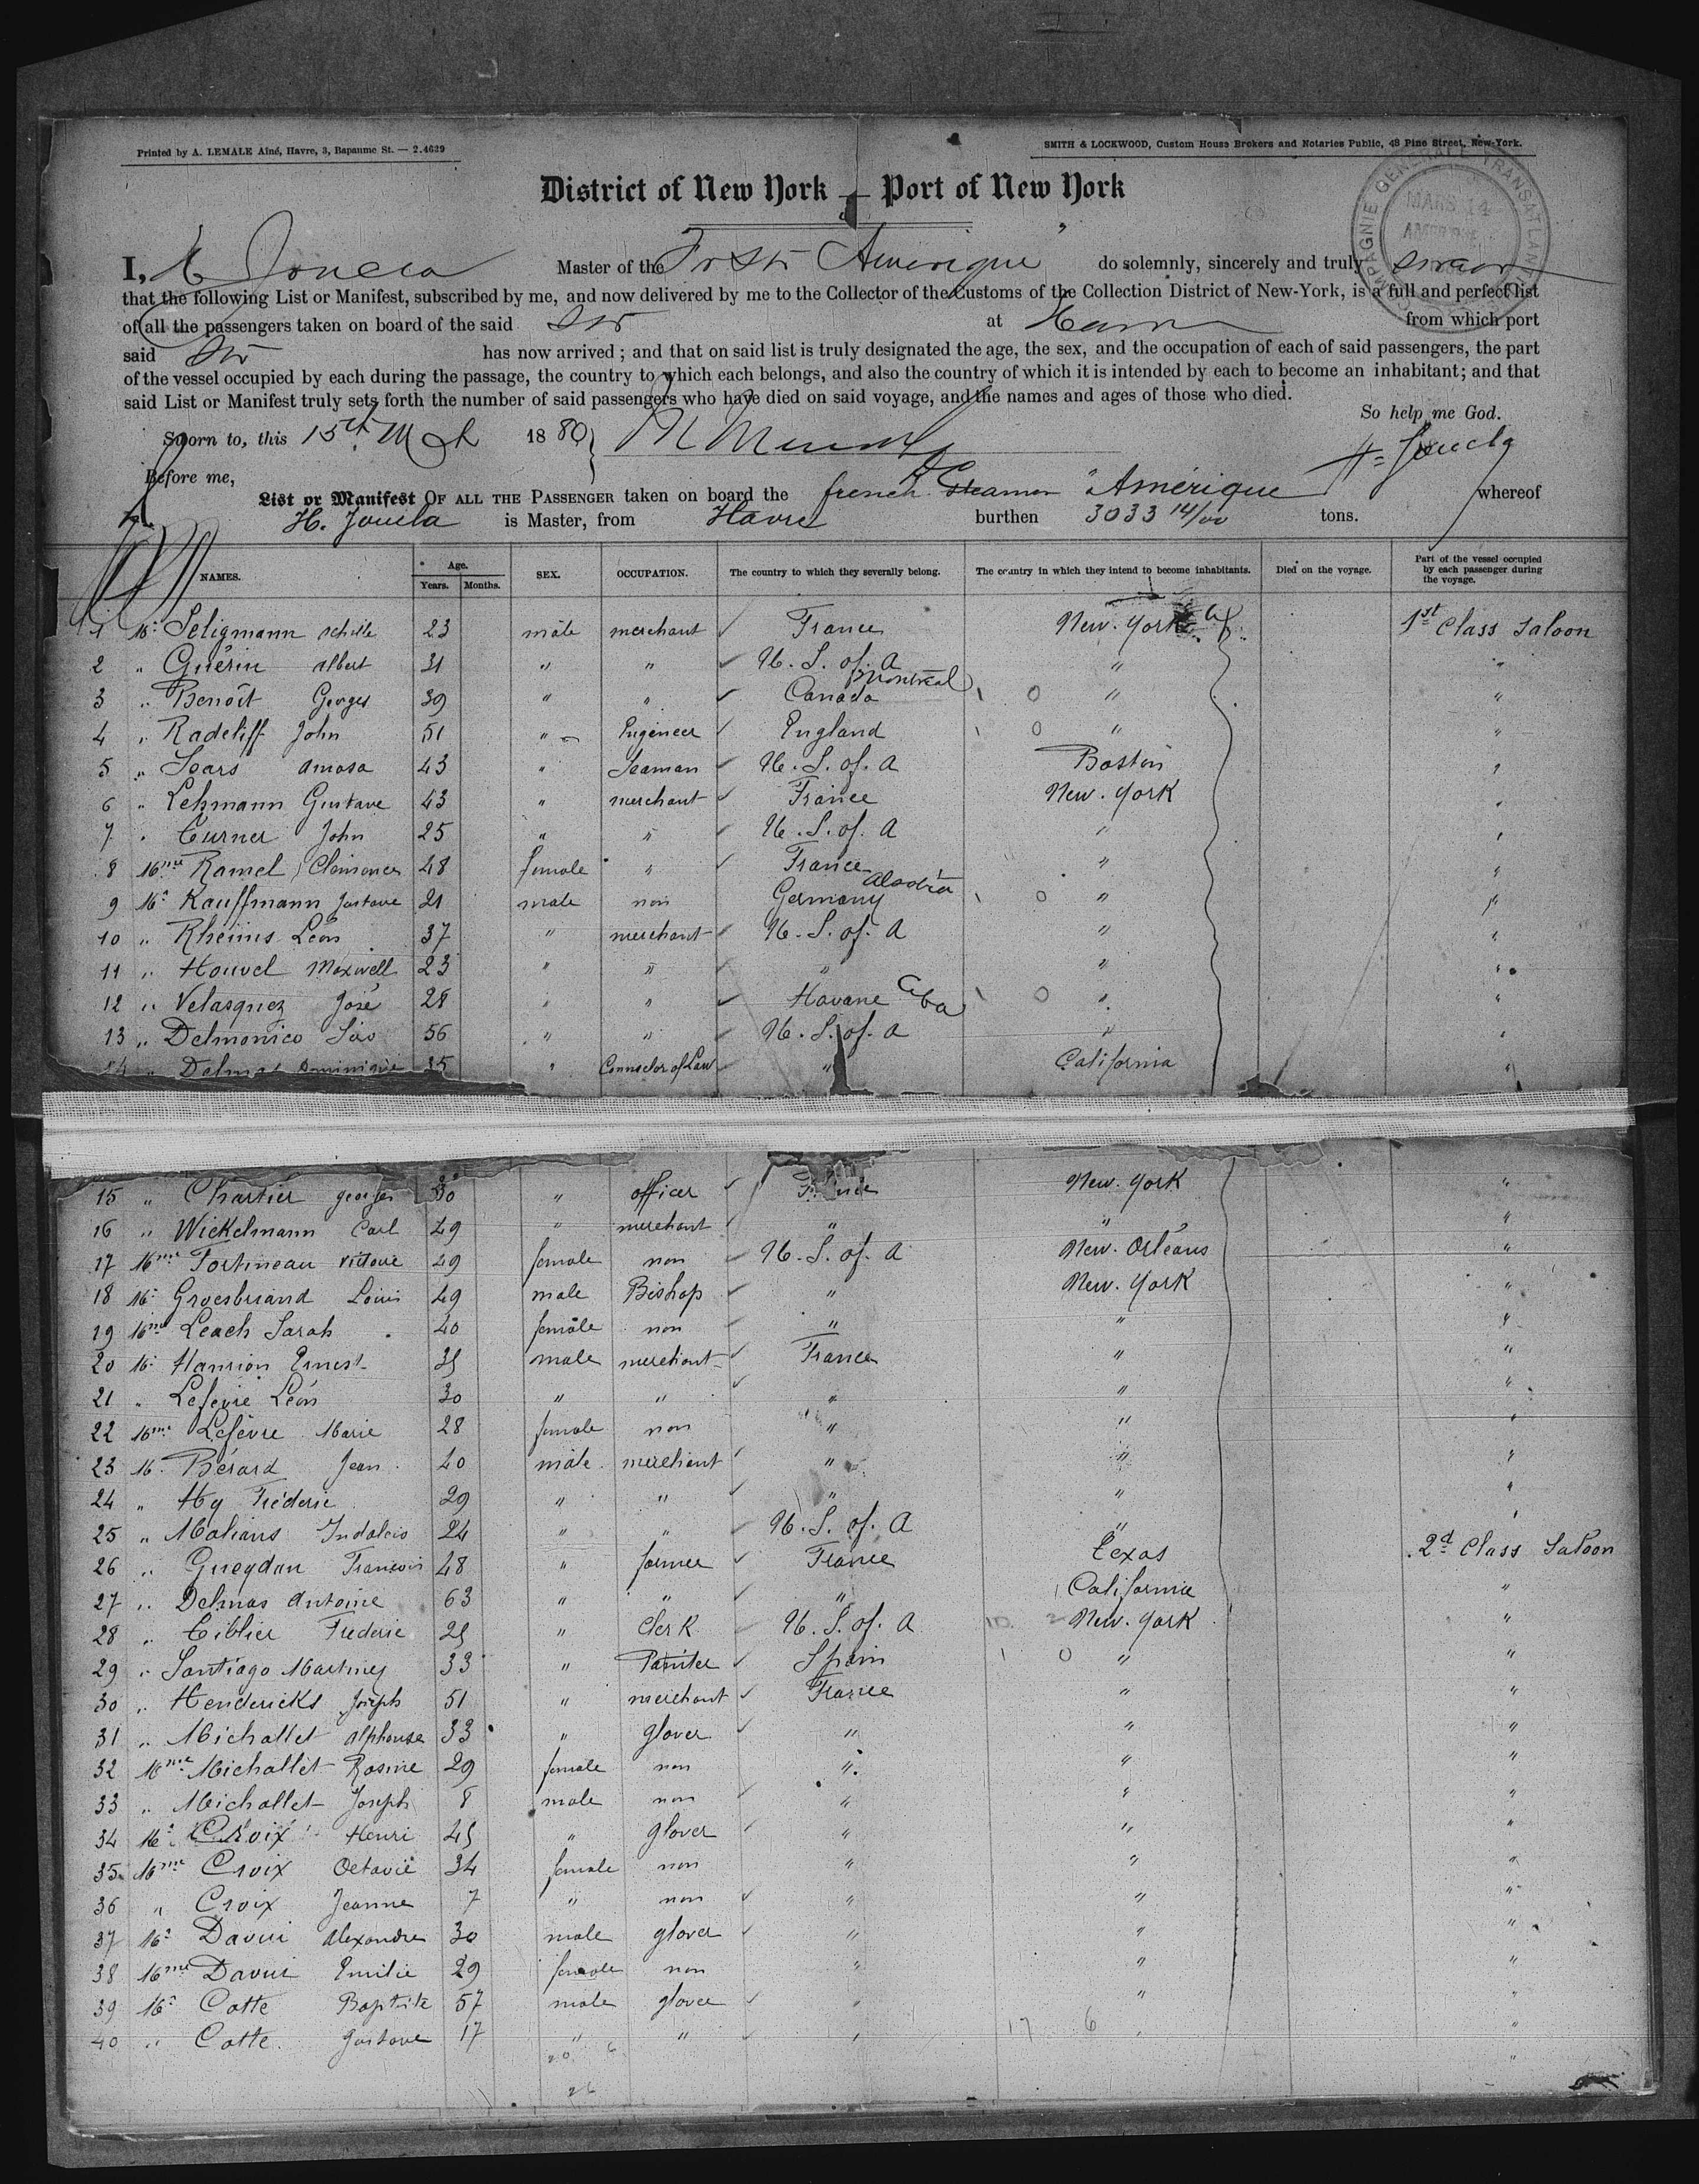 Printed by A. LEMALE Aîné, Havre, 3, Bapaume St. — 2.4629
SMITH & LOCKWOOD, Custom House Brokers and Notaries Public, 48 Pine Street, New-York.
COMPAGNIE GENERALE TRANSATLAN
MARS 14
District of New York — Port of New York
I, Joucla Master of the Fr Str Amerique do solemnly, sincerely and truly swear
that the following List or Manifest, subscribed by me, and now delivered by me to the Collector of the Customs of the Collection District of New-York, is a full and perfect list
of all the passengers taken on board of the said Str at Havre from which port
said Str has now arrived ; and that on said list is truly designated the age, the sex, and the occupation of each of said passengers, the part
of the vessel occupied by each during the passage, the country to which each belongs, and also the country of which it is intended by each to become an inhabitant; and that
said List or Manifest truly sets forth the number of said passengers who have died on said voyage, and the names and ages of those who died.
So help me God.
Sworn to, this 15th Mch 1880 H. Joucla
Before me,
List or Manifest OF ALL THE PASSENGER taken on board the french Steamer "Amérique whereof
H. Joucla is Master, from Havre burthen 3033 14/00 tons.
NAMES. Age. Years. Months. SEX. OCCUPATION. The country to which they severally belong. The country in which they intend to become inhabitants. Died on the voyage. Part of the vessel occupied by each passenger during the voyage.
1 Mr Seligmann 23 male merchant France New. York 1st Class Saloon
2 " Guérin albert 31 " " U. S. of. A " "
3 " Benoît Georges 39 " " Canada Montreal 1 0 " "
4 " Radcliff John 51 " Engineer England 1 0 " "
5 " Soars amasa 43 " Seaman U. S. of. A Boston "
6 " Lehmann Gustave 43 " merchant France New. York "
7 " Turner John 25 " " U. S. of. A " "
8 Mme Ramel Clemence 48 female " France " "
9 Mr Kauffmann Gustave 21 male non Germany 1 0 " "
10 " Rheims Léon 37 " merchant U. S. of. A " "
11 " Houvel Maxwell 23 " " " " "
12 " Velasquez José 28 " " Havane Cuba 1 0 " "
13 " Delmonico 56 " " U. S. of. A " "
14 " Delmas 35 " Counselor of Law " California "
15 " Chartier georges 30 " officer France New. York "
16 " Wickelmann Carl 49 " merchant " " "
17 Mme Fortineau Victoire 49 female non U. S. of. A New. Orléans "
18 Mr Groesbriand Louis 49 male Bishop " New. York "
19 Mme Leach Sarah 40 female non " " "
20 Mr Hanrion Ernest 35 male merchant France " "
21 " Lefevre Léon 30 " " " " "
22 Mme Lefèvre Marie 28 female non " " "
23 M. Bérard Jean 40 male merchant " " "
24 " Hy Fréderic 29 " " " " "
25 " Indalcio 24 " " U. S. of. A " "
26 " Gueydan Francois 48 " farmer France Texas 2d Class Saloon
27 " Delmas Antoine 63 " " " California "
28 " Tiblier Frederic 25 " Clerk U. S. of. A 10 2 New. York "
29 " Santiago Martiney 33 " Painter Spain 1 0 " "
30 " Hendericks Joseph 51 " merchant France " "
31 " Michallet alphonse 33 " glover " " "
32 Mme Michallet Rosine 29 female non " " "
33 " Michallet Joseph 8 male non " " "
34 Mr Croix Henri 45 " glover " " "
35 Mme Croix Octavie 34 female non " " "
36 " Croix Jeanne 7 " non " " "
37 Mr Davin Alexandre 30 male glover " " "
38 Mme Davin Emilie 29 female non " " "
39 Mr Cotte Baptiste 57 male glover " " "
40 " Cotte Gustave 17 " " " 17 6 " "
20 6
26